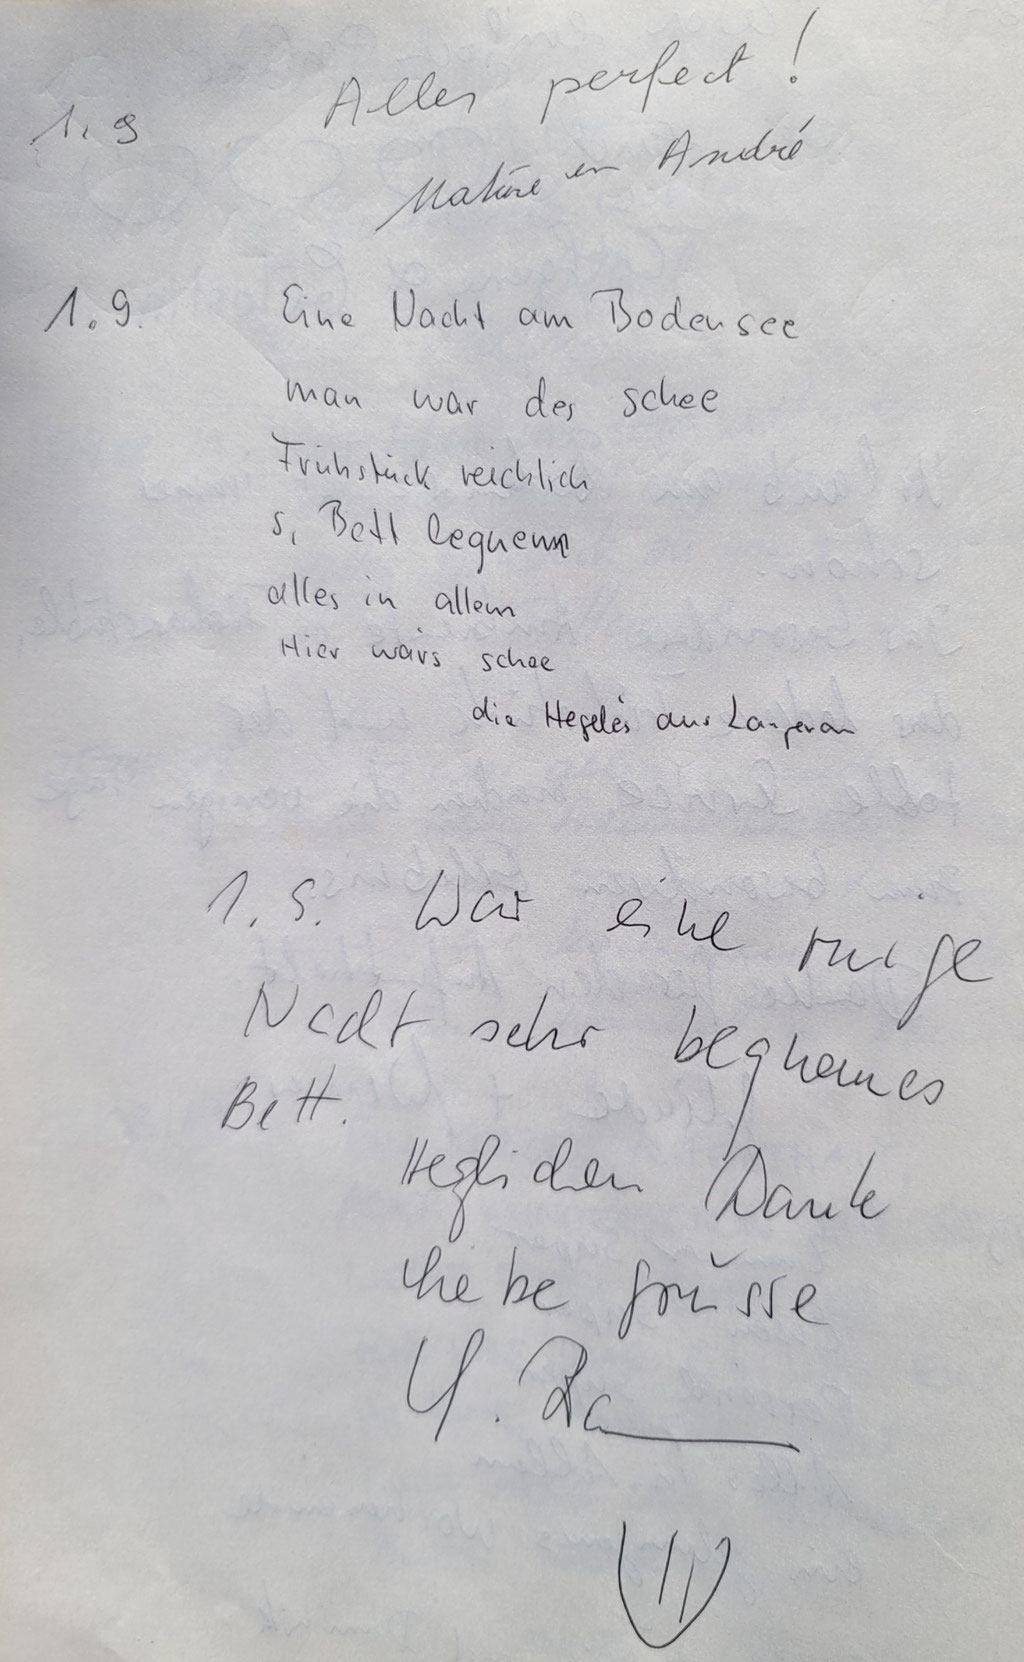 1.9 Alles perfect!
en André
1.9. Eine Nacht am Bodensee
man war des schee
Frühstück reichlich
s, Bett bequem
alles in allem
Hier wärs schee
die Hegeles aus
1.9. War eine ruige
Nacht sehr bequemes
Bett.
Hezlichen Dank
liebe grüsse